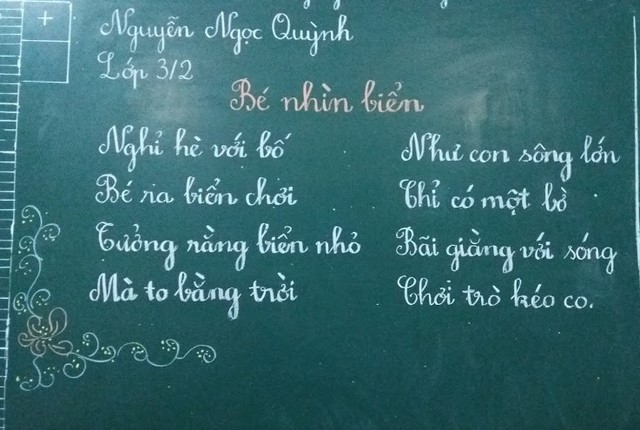 Nguyễn Ngọc Quỳnh
Lớp 3/2
Bé nhìn biển
Nghỉ hè với bố
Bé ra biển chơi
Tưởng rằng biển nhỏ
Mà to bằng trời
Như con sông lớn
Chỉ có một bờ
Bãi giằng với sóng
Chơi trò kéo co.